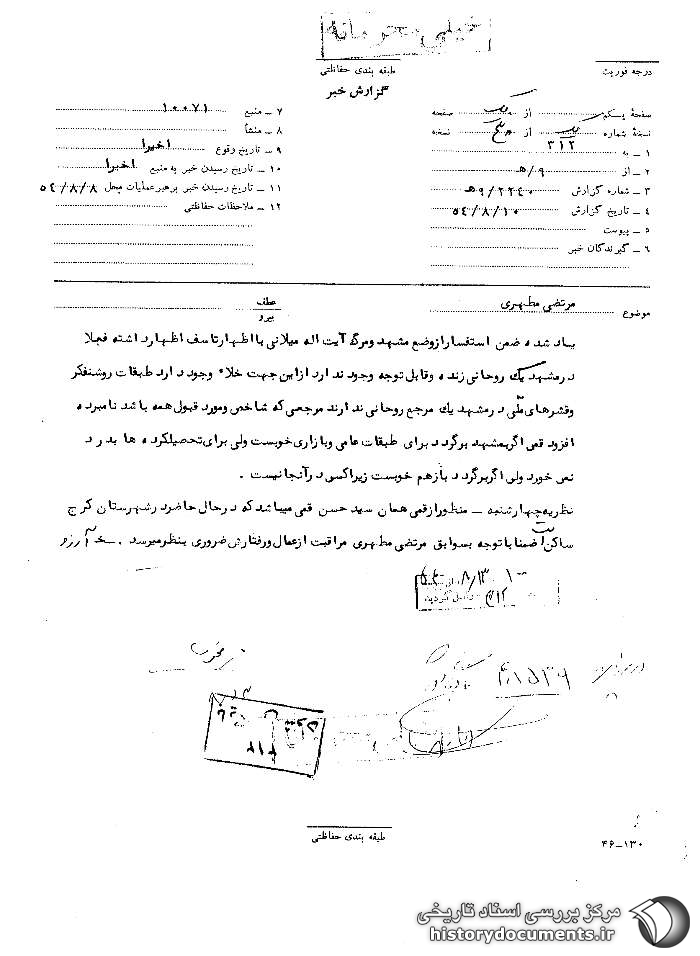 خیلی محرمانه
طبقه بندی حفاظتی
درجه فوریت
گزارش خبر
صفحهٔ یکم از یک صفحه
نسخهٔ شماره یک از پنج نسخه
۱ ـ به ۳۱۲
۲ ـ از ۹/هـ
۳ ـ شماره گزارش ۹/۲۲۴۰هـ
۴ ـ تاریخ گزارش ۵٤/۸/۱۰
۵ ـ پیوست
۶ ـ گیرندگان خبر
۷ ـ منبع ۱۰۰۷۱
۸ ـ منشأ
۹ ـ تاریخ وقوع اخیرا
۱۰ ـ تاریخ رسیدن خبر به منبع اخیرا
۱۱ ـ تاریخ رسیدن خبر برهبر عملیات محل ۵٤/۸/۸
۱۲ ـ ملاحظات حفاظتی
موضوع مرتضی مطهری
عطف
پیرو
یاد شده ضمن استفسار از وضع مشهد ومرگ آیت اله میلانی با اظهار تاسف اظهار داشته فعلا
در مشهد یك روحانی زنده وقابل توجه وجود ندارد از این جهت خلاء وجود دارد طبقات روشنفکر
وقشرهای ملّی در مشهد یك مرجع روحانی ندارند مرجعی که شاخص ومورد قبول همه باشد نامبرده
افزود قمی اگر بمشهد برگردد برای طبقات عامی وبازاری خوبست ولی برای تحصیلکرده ها بدرد
نمی خورد ولی اگر برگردد باز هم خوبست زیرا کسی در آنجا نیست .
نظریه چهارشنبه ـ منظور از قمی همان سید حسن قمی میباشد که در حال حاضر در شهرستان کرج
ساکن است ضمنا با توجه بسوابق مرتضی مطهری مراقبت از عمال ورفتارش ضروری بنظر میرسد . خ آرزو
۸/۱۳
۳۱۲
۴۱۵۳۹
۳۱۲
طبقه بندی حفاظتی
۱۳۰-۴۶
مرکز بررسی اسناد تاریخی
historydocuments.ir